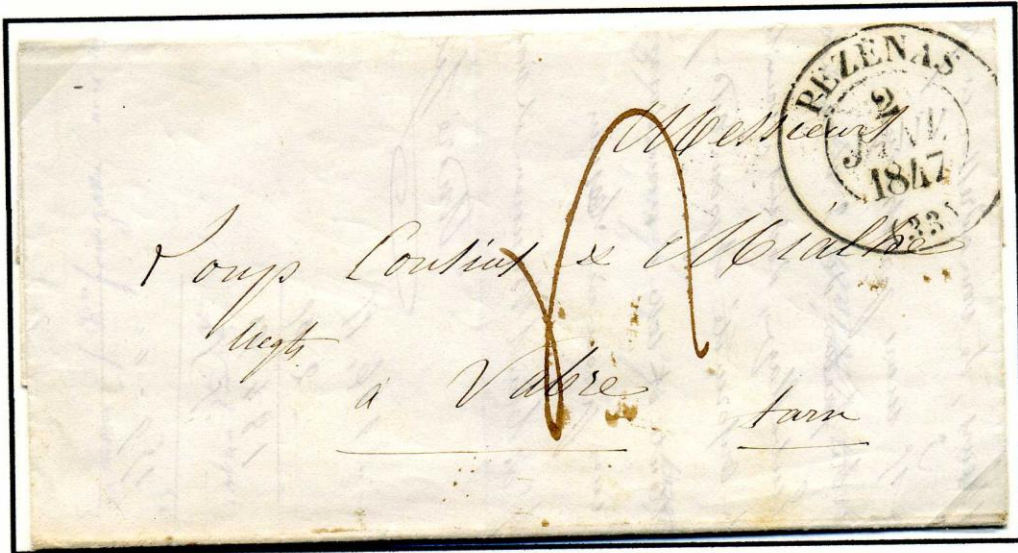 PEZENAS
2
JANV.
1847
(33)
Messieurs
Loup Cousins & Mialhe
negts
à Vabre
tarn